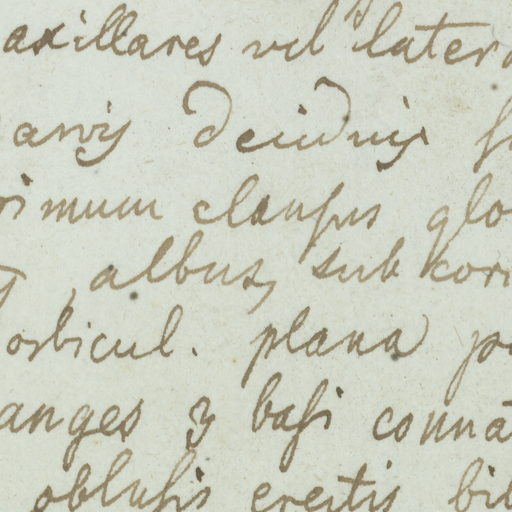 axillares vel latera
parvis deciduis
primum clausus glo
albus, sub cor
orbicul. plana p
anges 3 basi connat
obtusis erectis bil